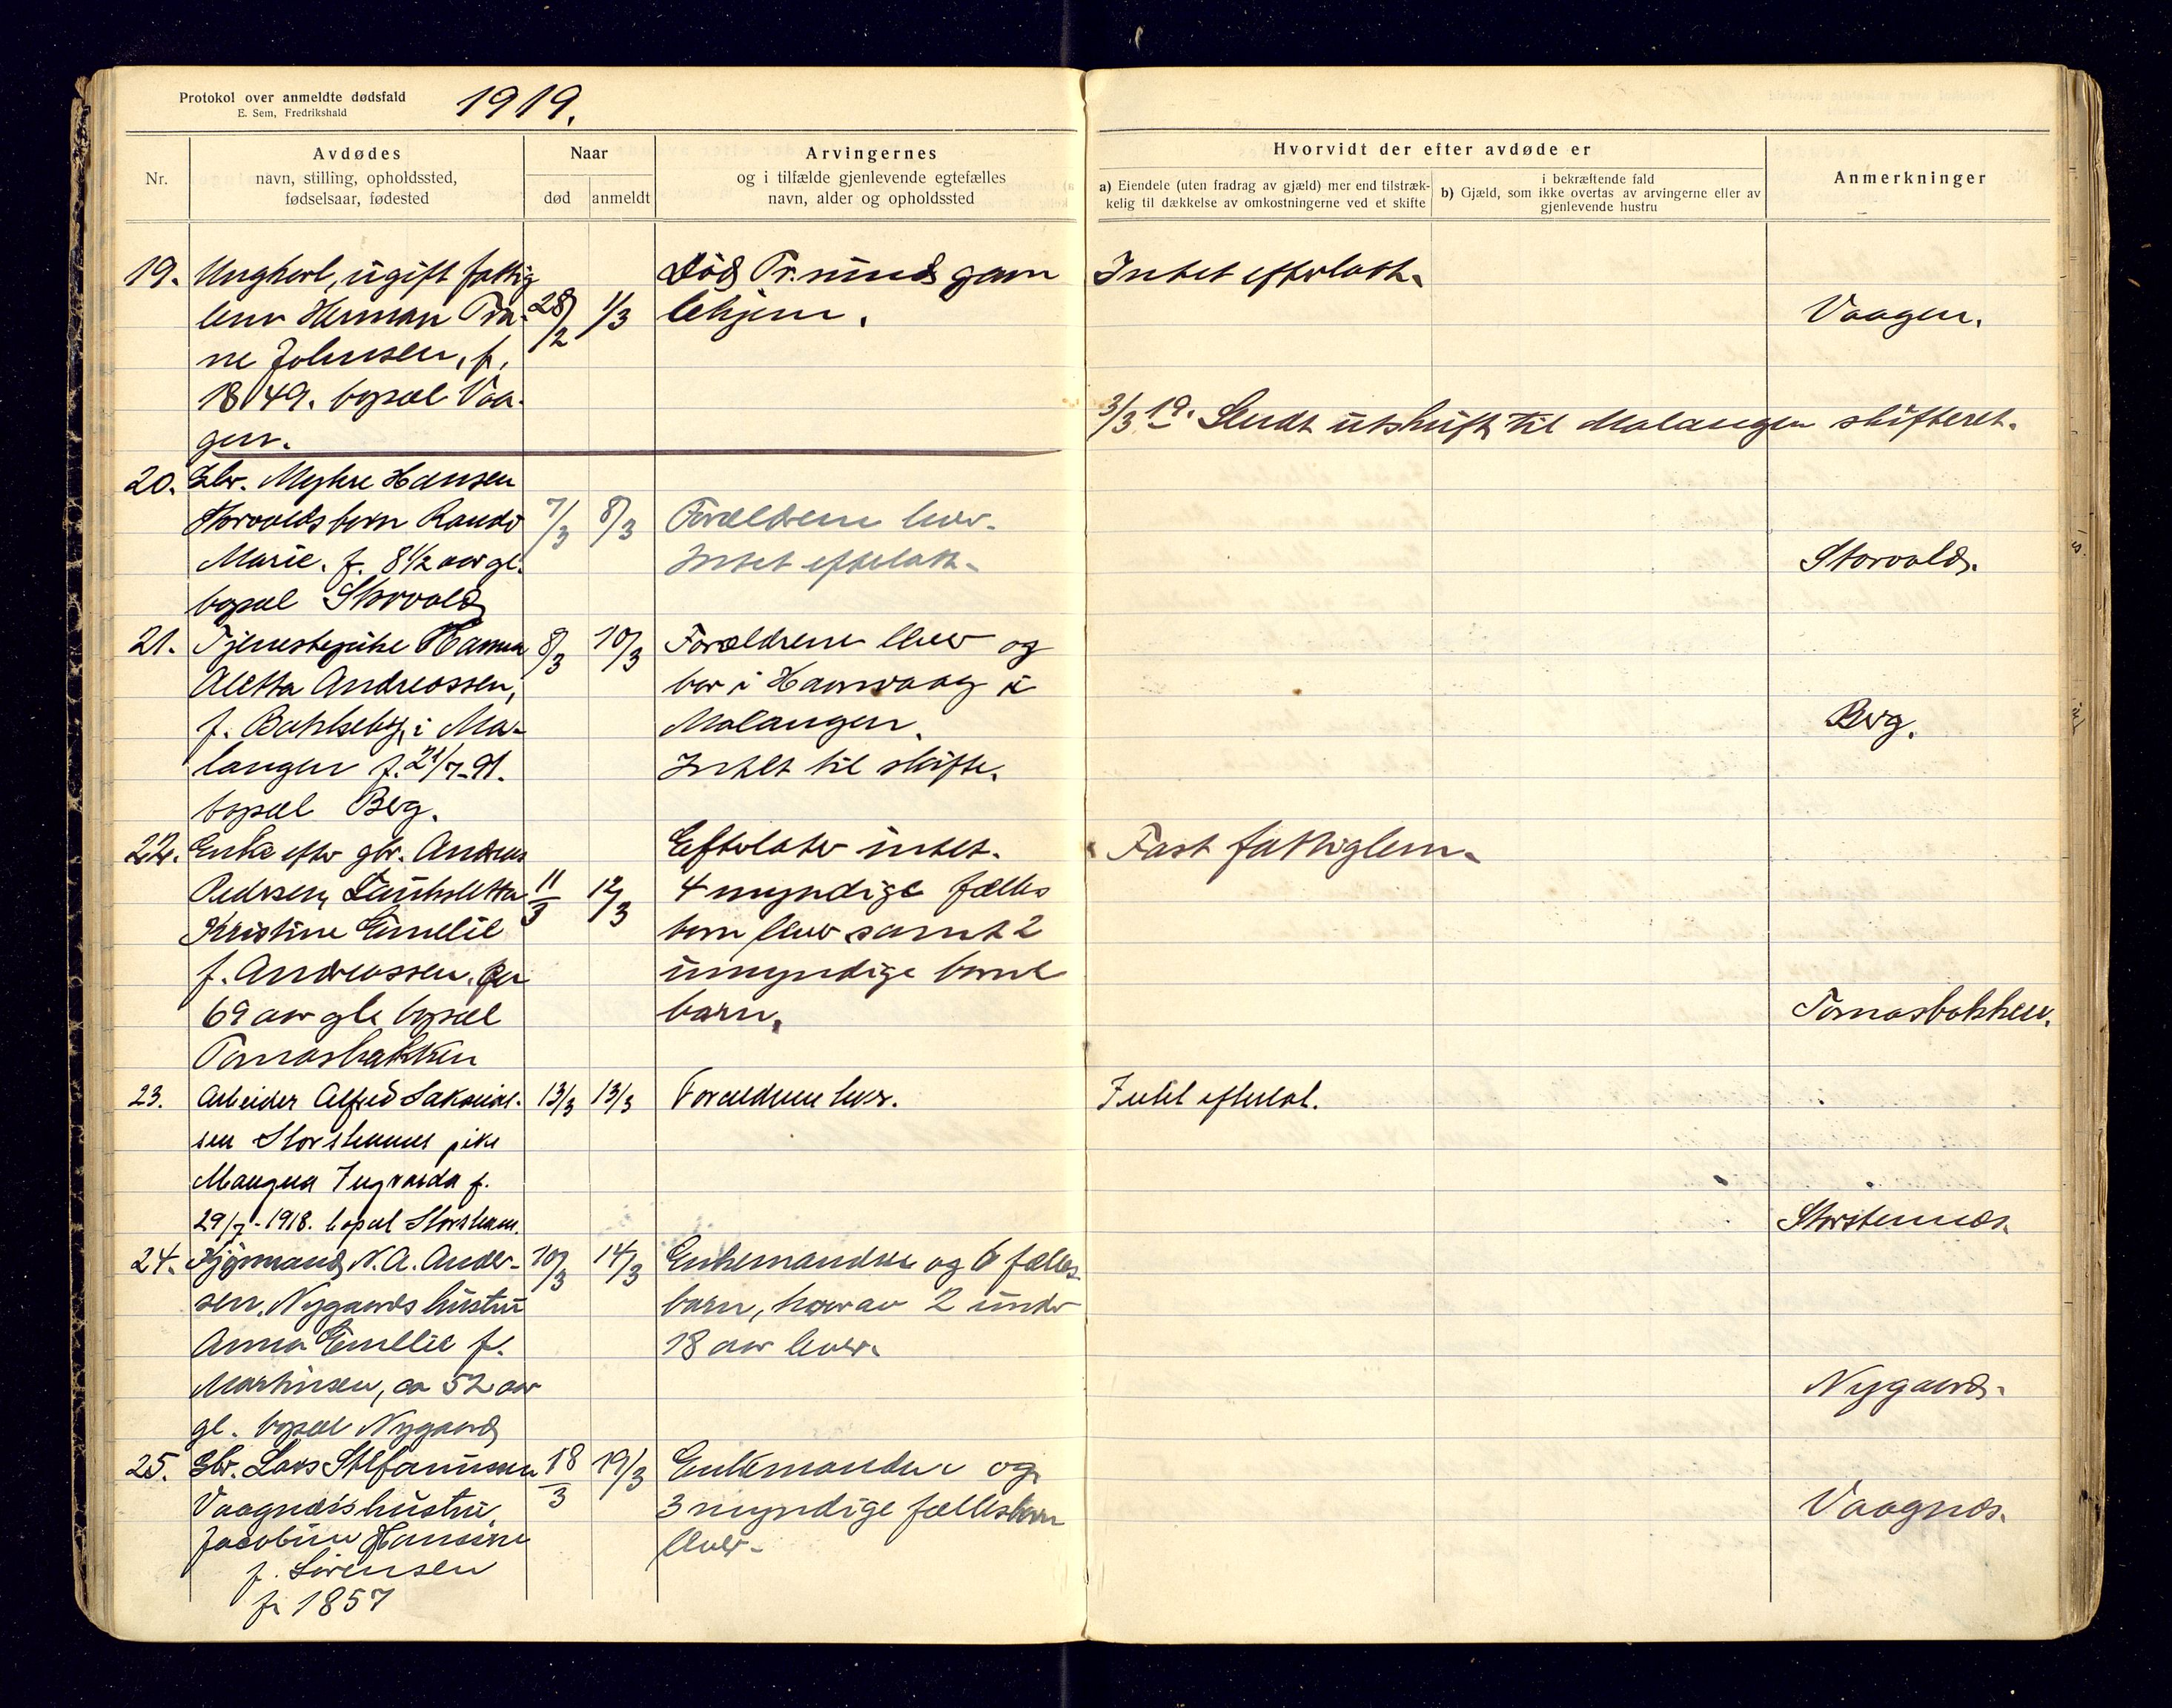 Protokol over anmeldte dødsfald
E. Sem, Fredrikshald
1919.
Nr.
Avdødes
navn, stilling, opholdssted,
fødselsaar, fødested
Naar
død
anmeldt
Arvingernes
og i tilfælde gjenlevende egtefælles
navn, alder og opholdssted
Hvorvidt der efter avdøde er
a) Eiendele (uten fradrag av gjæld) mer end tilstræk-
kelig til dækkelse av omkostningerne ved et skifte
i bekræftende fald
b) Gjæld, som ikke overtas av arvingerne eller av
gjenlevende hustru
Anmerkninger
19.
Ungkerl, ugift fattig
lem Herman Tra-
ne Johnsen, f.
1849. bopæl Vaa-
gen.
28/2
1/3
Død Tr.sunds gam
lehjem.
Intet efterlatt.
Vaagen.
3/3 19. Sendt utskrift til Malangen skifteret.
20.
Gbr. Myhre Hansen
Storvolds barn Randi
Marie. f. 8 1/2 aar gl.
bopæl Storvold
7/3
8/3
Forældrene lever.
Intet efterlatt.
Storvold.
21.
Tjenestepike Hanna
Aletta Andreassen,
f. Bakkeby i Ma-
langen f. 21/7-91.
bopæl Berg.
8/3
10/3
Forældrene lever og
bor i Havnvaag i
Malangen.
Intet til skifte.
Berg.
22.
Enke efter gbr. Andreas
Pedersen,
Kristine Emelie
f. Andreassen.
69 aar gl. bopæl
Tomasbakken
11/3
12/3
Efterlater intet.
4 myndige fælles
barn lever samt 2
umyndige barne
barn.
Fast fattiglem.
Tomasbakken.
23.
Arbeider Alfred Sakarias-
sen Storstennes pike
Mangna Ingvarda f.
29/7-1918. bopæl Storstenn.
13/3
13/3
Forældrene lever.
Intet efterlat.
Storstennes.
24.
Kjøpmand N. A. Ander-
sen, Nygaards hustru
Anna Emelie f.
Martinsen, ca 52 aar
gl. bopæl Nygaard
10/3
14/3
Enkemanden og 6 fælles
barn, hvorav 2 under
18 aar lever.
Nygaard.
25.
Gbr. Lars Steffanussen
Vaagnæs hustru,
Jacobine Hansine
f. Sørensen
f. 1857
18/3
19/3
Enkemanden og
3 myndige fællesbarn
lever.
Vaagnes.